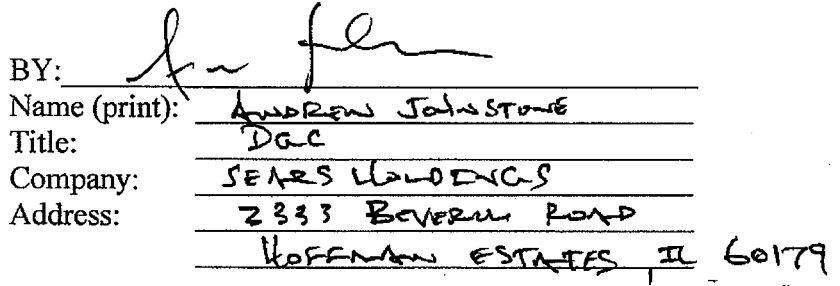 BY:
Name (print): ANDREW JOHNSTONE
Title: DGC
Company: SEARS HOLDINGS
Address: 2333 BEVERLY ROAD
HOFFMAN ESTATES IL 60179